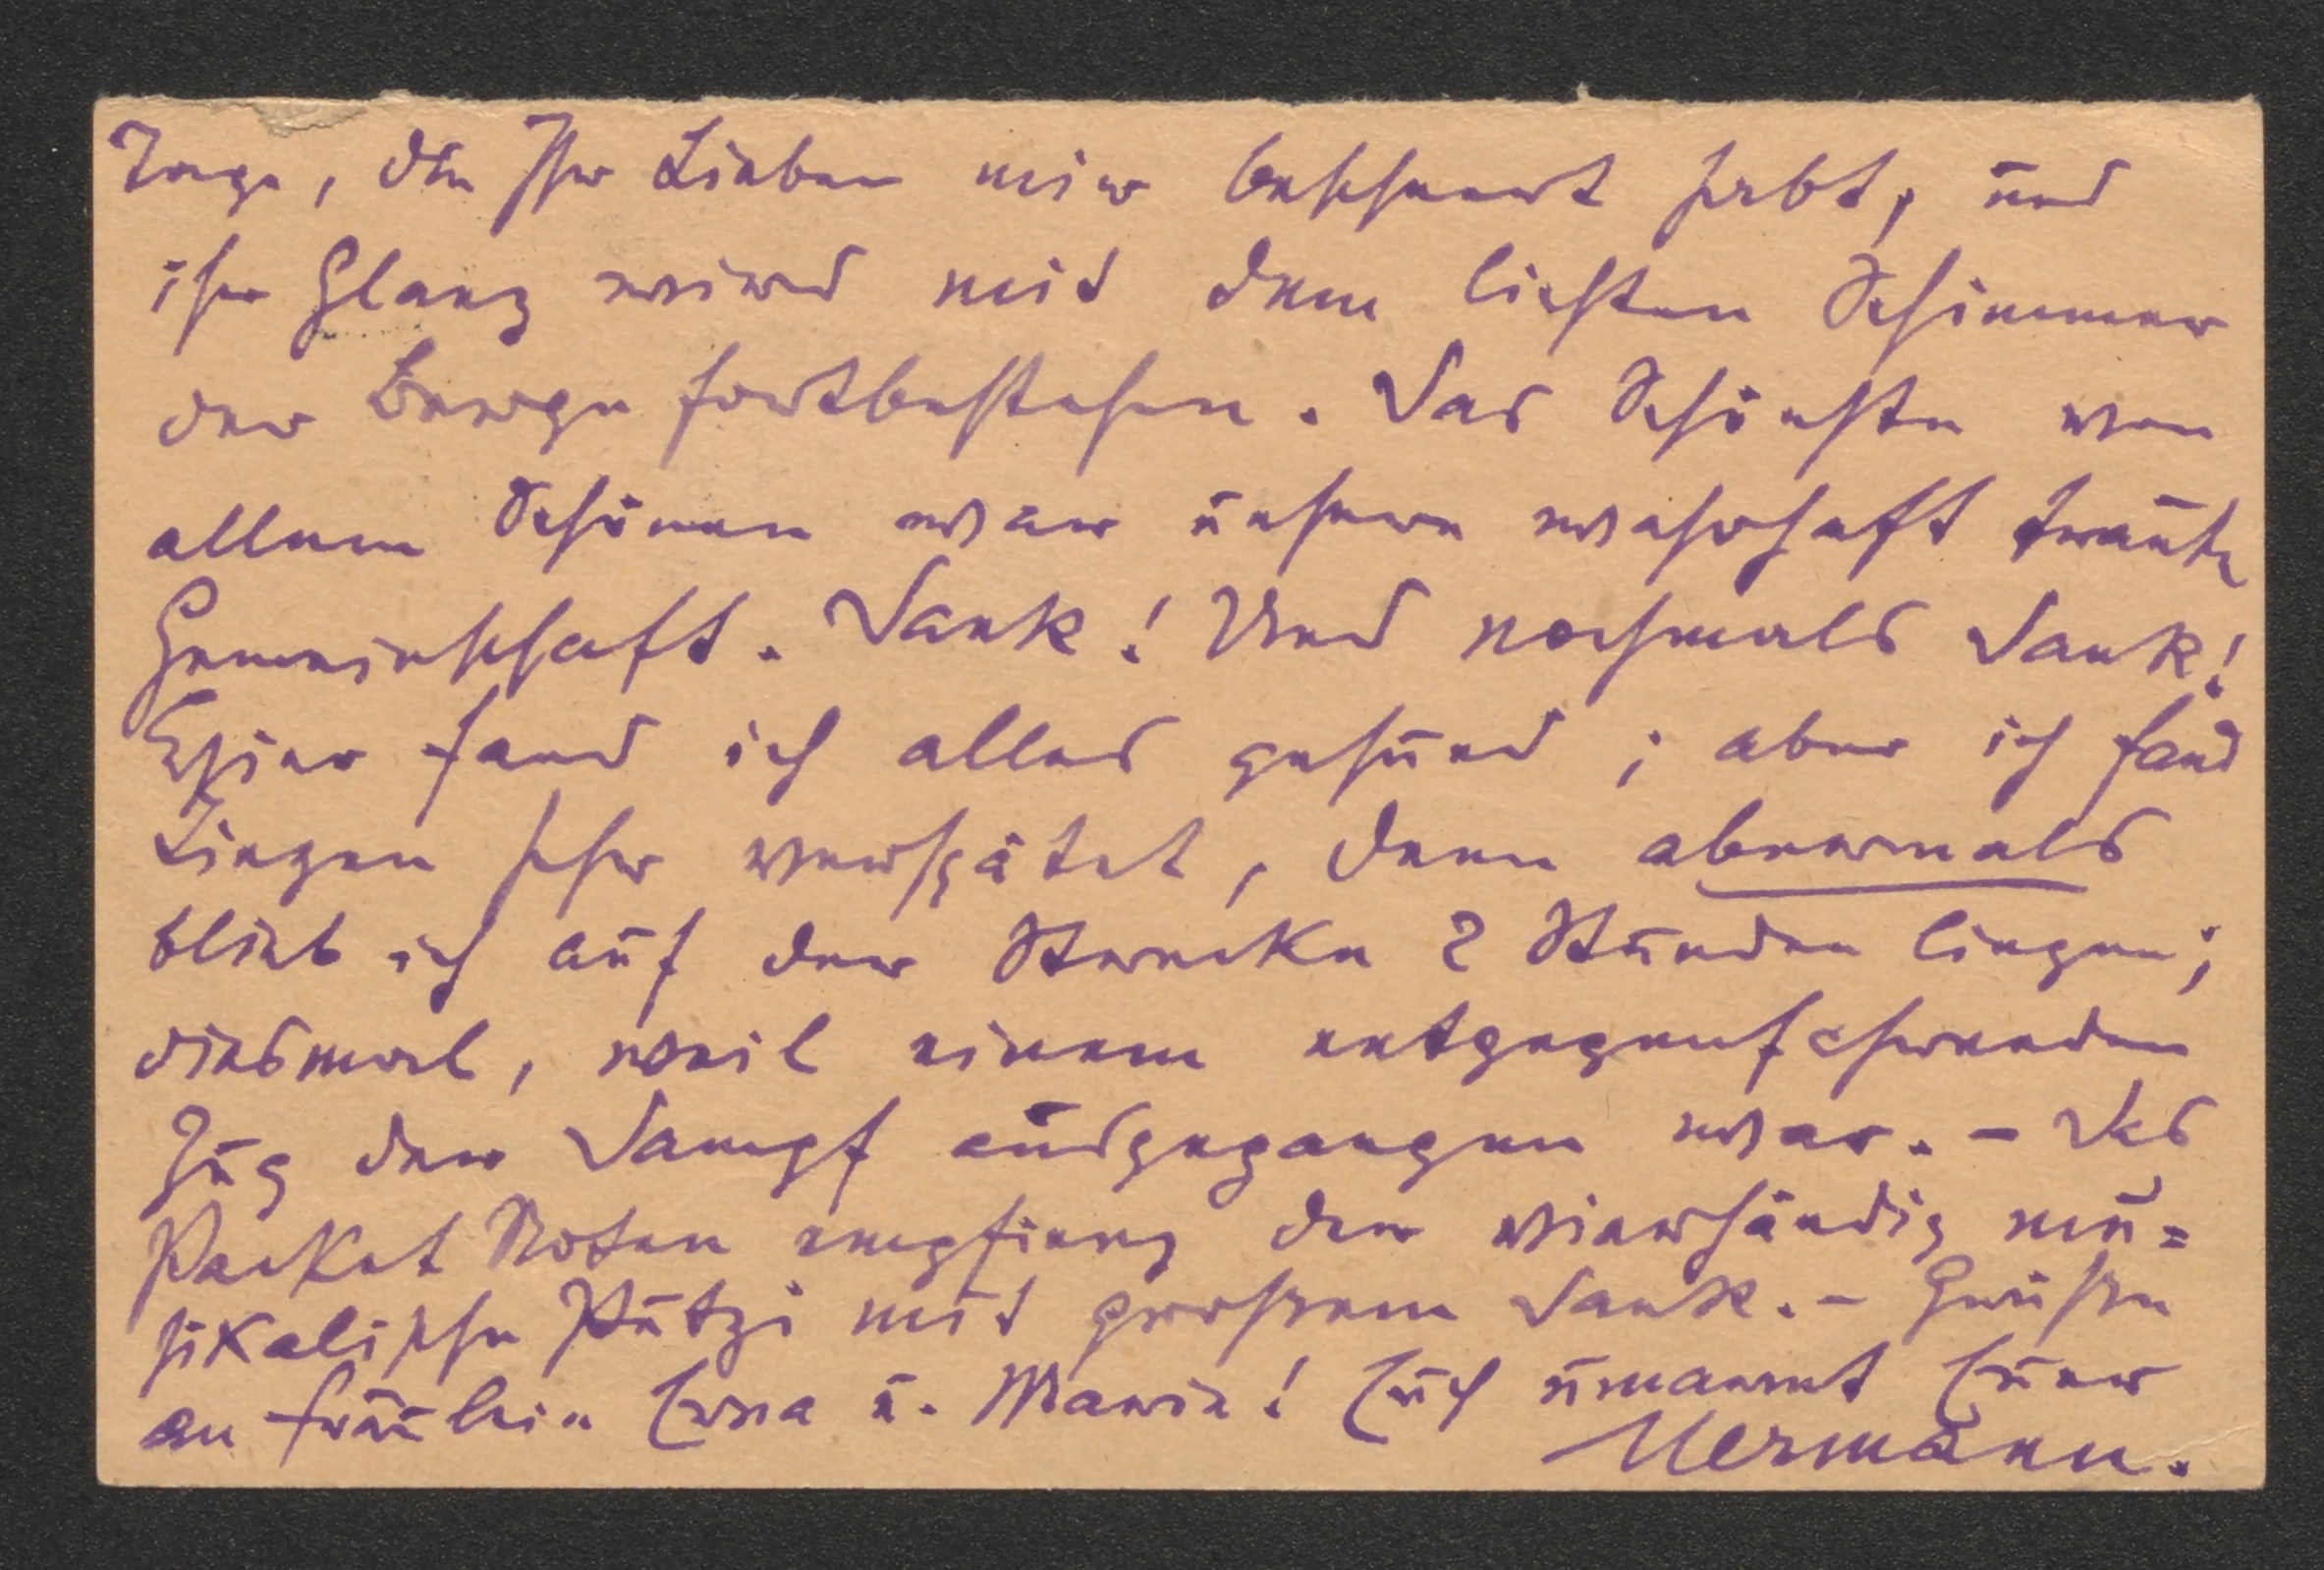 Tage, die Ihr Lieben mir beschert habt, und
ihr Glanz wird mit dem lichten Schimmer
der Berge fortbestehen. Das Schönste von
allem Schönen war unsere wahrhaft traute
Gemeinschaft. Dank! Und nochmals Dank!
Hier fand ich alles gesund; aber ich fand
Lingen sehr verspätet, denn abermals
blieb ich auf der Strecke 2 Stunden liegen;
diesmal, weil einem entgegenfahrenden
Zug der Dampf ausgegangen war. – Das
Packet Noten empfieng der vierhändig mu=
sikalische Putzi mit großem Dank. – Grüße
an Fräulein Erna u. Marie! Euch umarmt Euer
Hermann.